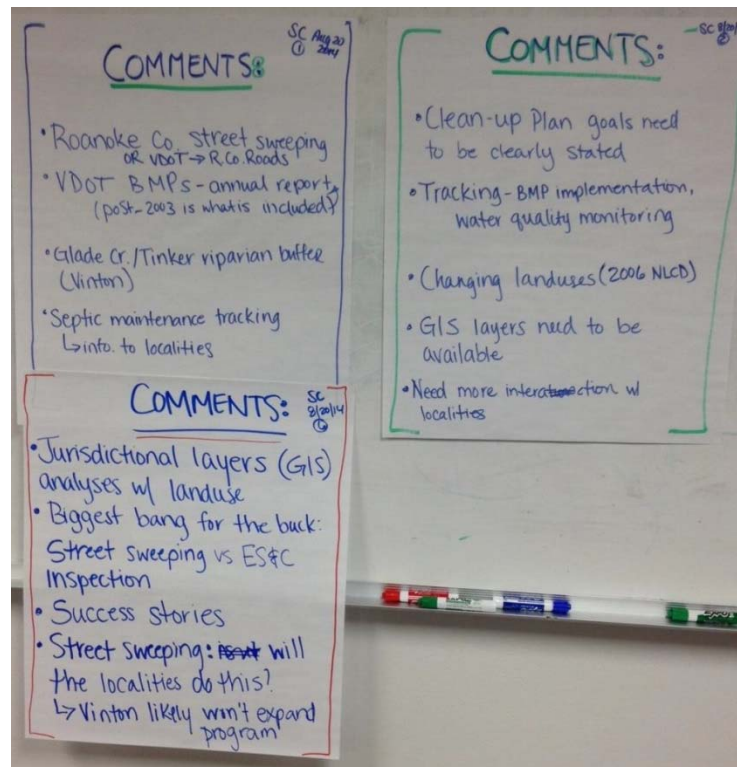 COMMENTS:
SC Aug 20
① 2014
• Roanoke Co. street sweeping
OR VDOT → R.Co. Roads
• VDOT BMPs - annual report
(post-2003 is what is included?)
• Glade Cr./Tinker riparian buffer
(Vinton)
• Septic maintenance tracking
↳ info. to localities
COMMENTS:
SC 8/20/14
• Clean-up Plan goals need
to be clearly stated
• Tracking - BMP implementation,
water quality monitoring
• Changing landuses (2006 NLCD)
• GIS layers need to be
available
• Need more interaction w/
localities
COMMENTS:
SC
8/20/14
• Jurisdictional layers (GIS)
analyses w/ landuse
• Biggest bang for the buck:
Street sweeping vs ES&C
Inspection
• Success stories
• Street sweeping: will
the localities do this?
↳ Vinton likely won't expand
program